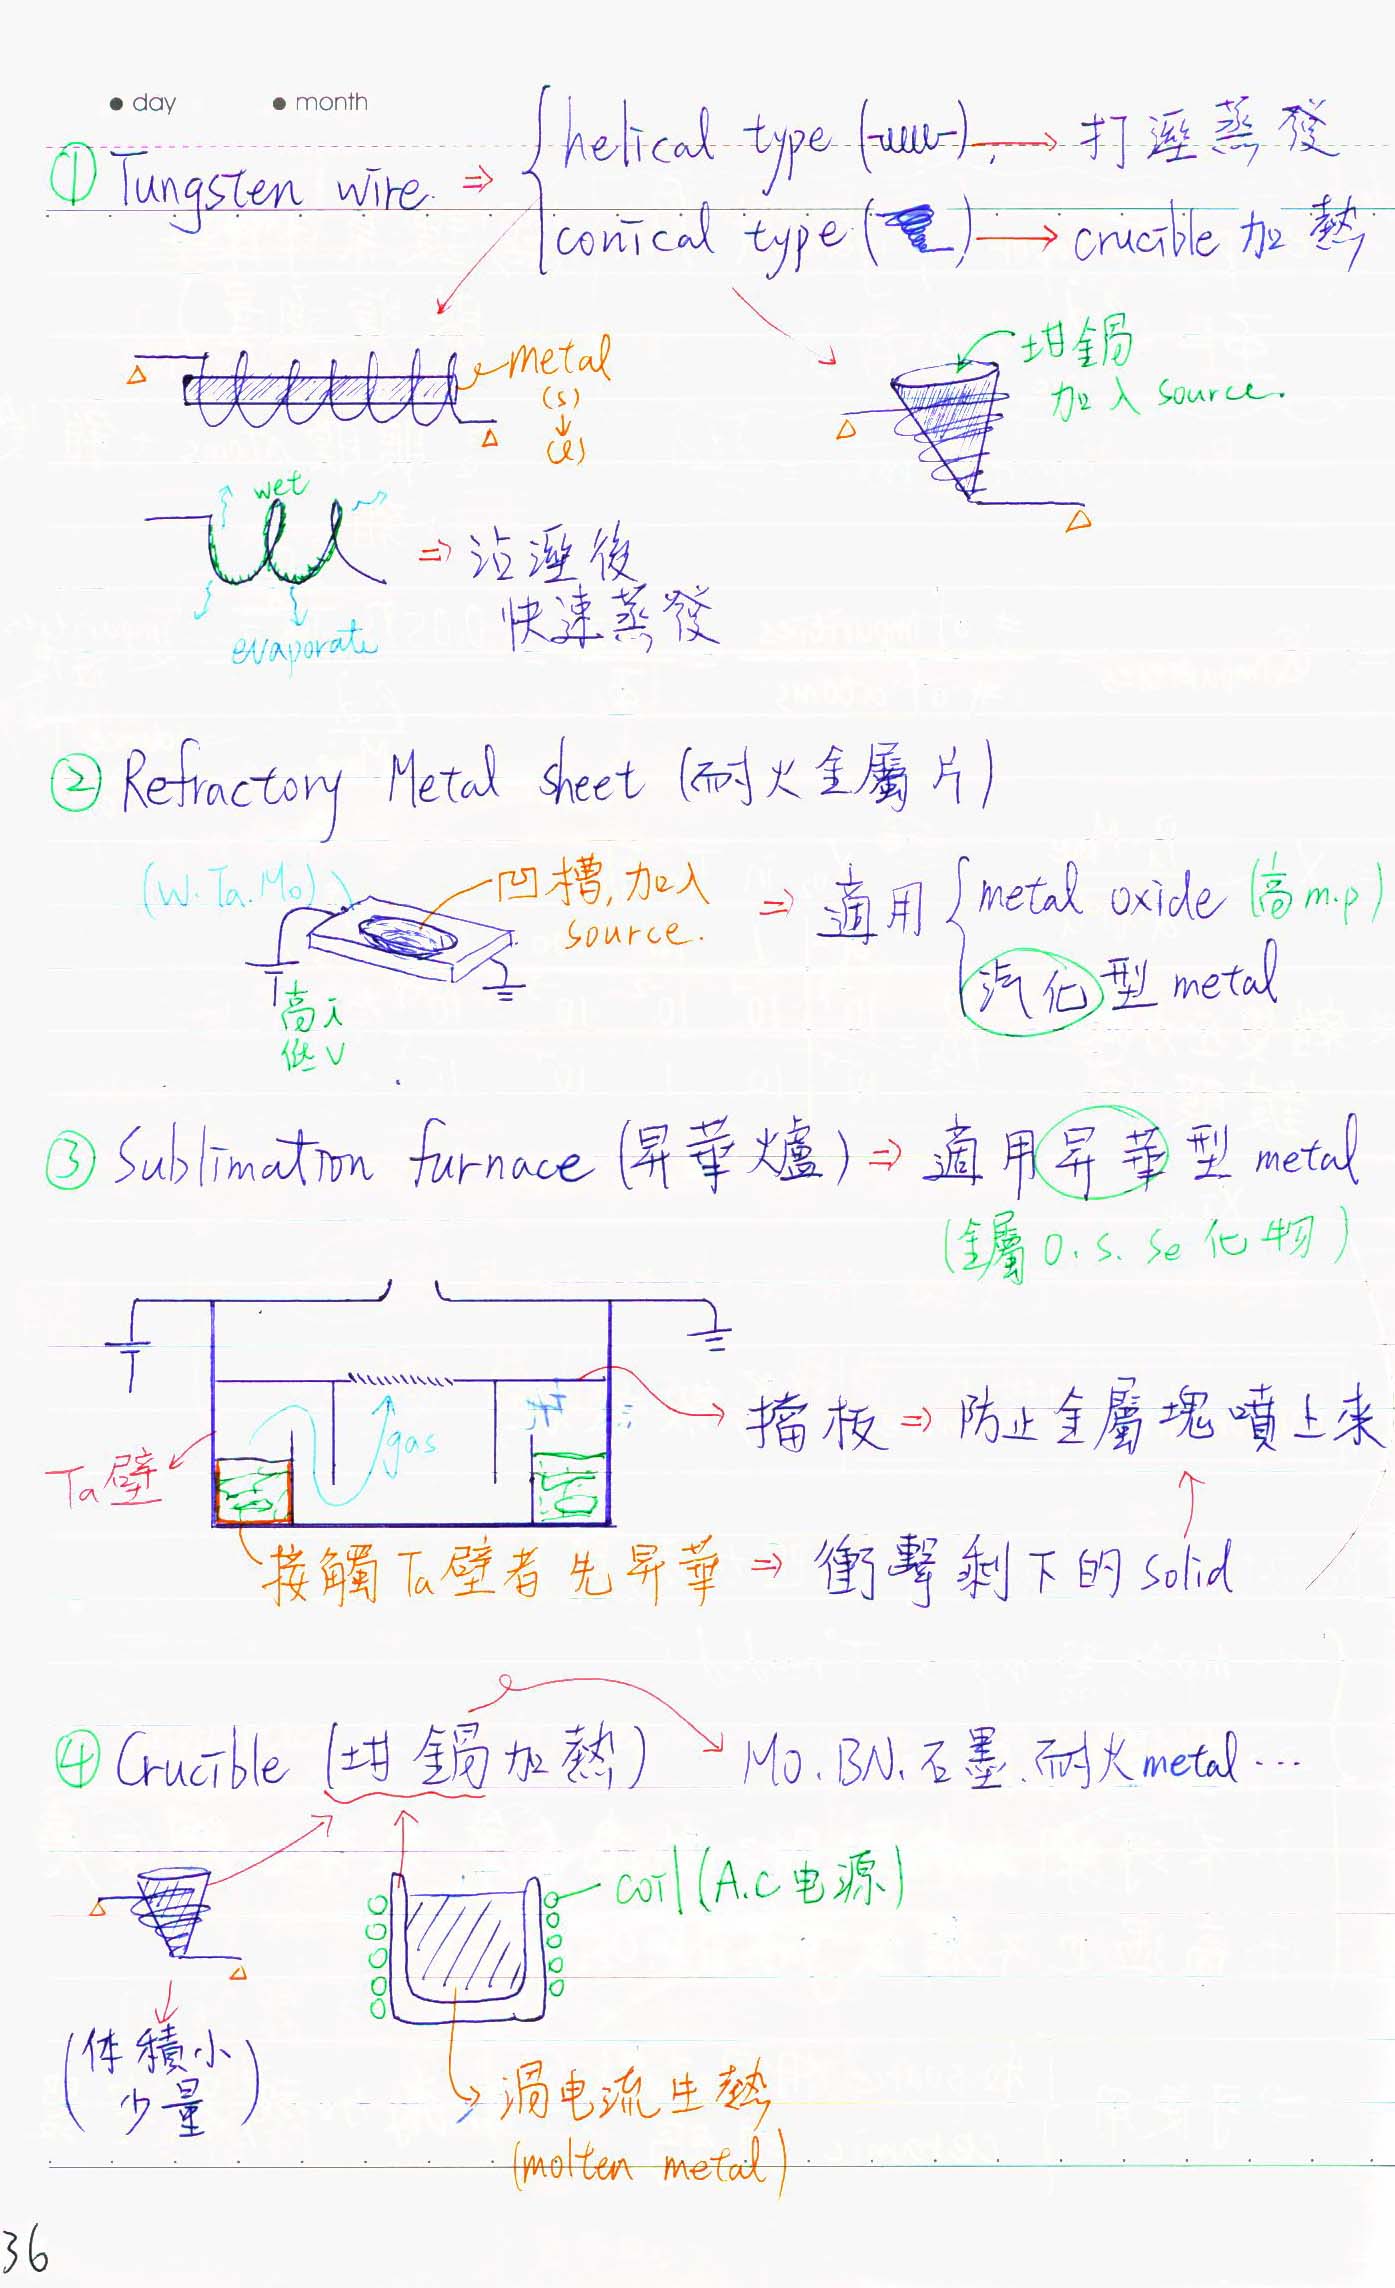 ● day ● month
① Tungsten wire ⇒ { helical type ( ) → 打溼蒸發
conical type ( ) → crucible 加熱
metal
(s)
↓
(l)
坩鍋
加入 source.
wet
evaporate
⇒ 沾溼後
快速蒸發
② Refractory Metal sheet (耐火金屬片)
(W.Ta.Mo)
凹槽,加入
source.
⇒ 適用 { metal oxide (高m.p)
汽化型 metal
高i
低V
③ Sublimation furnace (昇華爐) ⇒ 適用昇華型 metal
(金屬O.S.Se化物)
gas
Ta壁
擋板 ⇒ 防止金屬塊噴上來
接觸Ta壁者先昇華 ⇒ 衝擊剩下的solid
④ Crucible (坩鍋加熱) → Mo.BN.石墨.耐火metal…
coil(A.C电源)
(体積小
少量)
渦电流生熱
(molten metal)
36